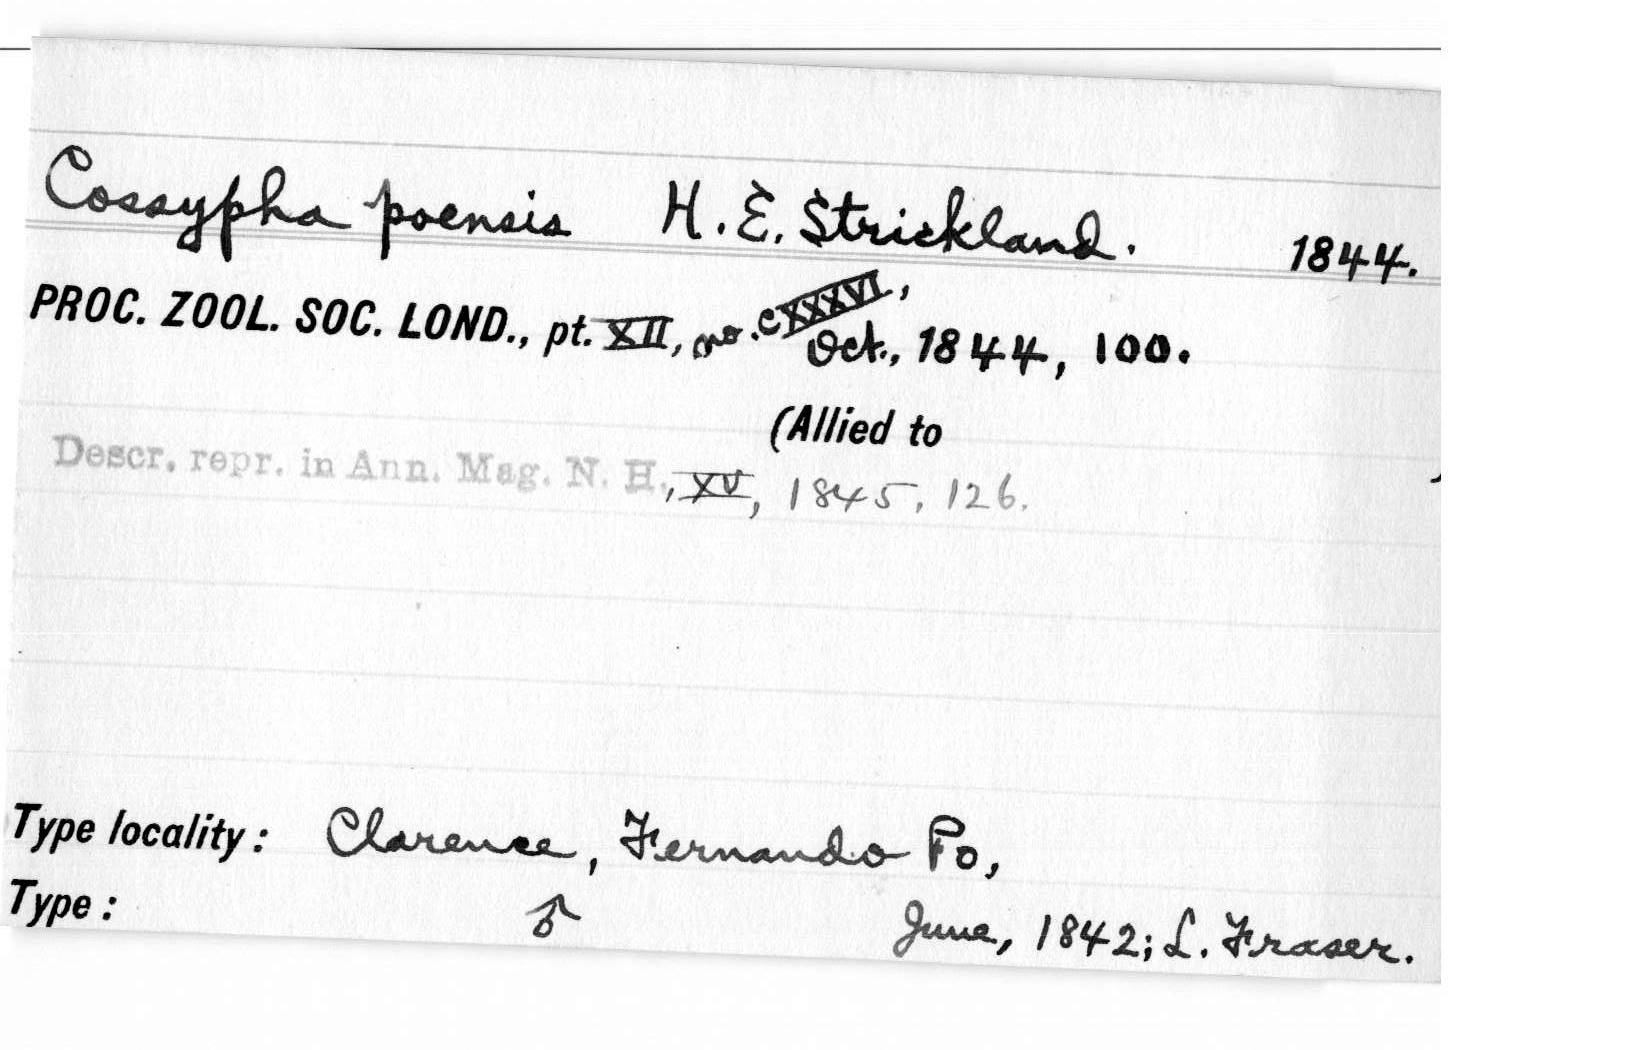 Cossypha poensis H. E. Strickland. 1844.
PROC. ZOOL. SOC. LOND., pt. XII, no. CXXXVI,
Oct., 1844, 100.
(Allied to
Descr. repr. in Ann. Mag. N. H., XV, 1845, 126.
Type locality: Clarence, Fernando Po,
Type: ♂ June, 1842; L. Fraser.